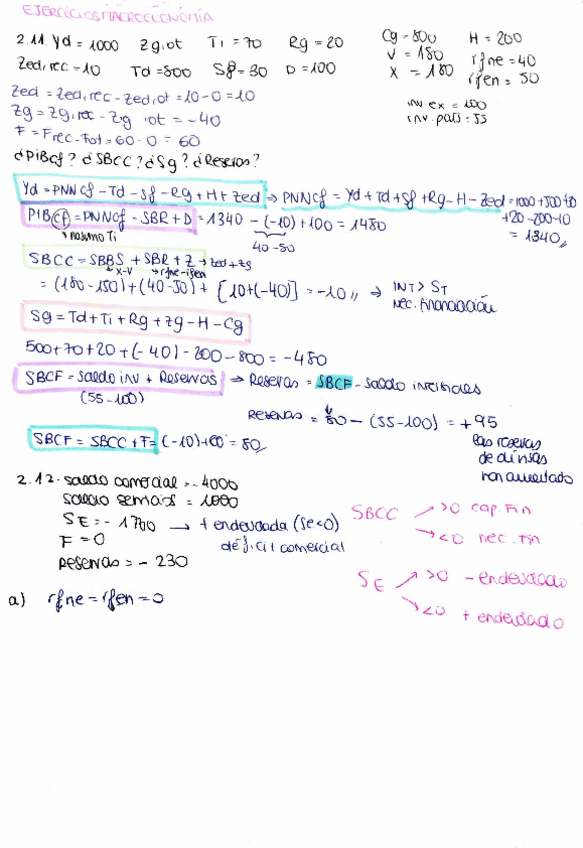 EJERCICIOS MACROECONOMÍA
2.11. Yd = 1000 Zg,ot Ti = 70 Rg = 20 Cg = 800 H = 200
V = 150 rfne = 40
Zed,rec = 10 Td = 500 Sf = 30 D = 100 X = 180 rfen = 50
Zed = Zed,rec - Zed,ot = 10 - 0 = 10 inv ex = 100
Zg = Zg,rec - Zg,ot = -40 inv.país = 55
F = Frec - Fot = 60 - 0 = 60
¿PIBcf? ¿SBCC? ¿Sg? ¿Reservas?
Yd = PNNcf - Td - Sf - Rg + H + Zed → PNNcf = Yd + Td + Sf + Rg - H - Zed = 1000 + 500 + 30
+20 - 200 - 10
PIBcf = PNNcf - SBR + D = 1340 - (-10) + 100 = 1450
= 1340
no sumo Ti 40 - 50
SBCC = SBBS + SBR + Z → Zed + Zg
X-V rfne-rfen
= (180 - 150) + (40 - 50) + [10 + (-40)] = -10 ⇒ INT > ST
nec. financiación
Sg = Td + Ti + Rg + Zg - H - Cg
500 + 70 + 20 + (-40) - 200 - 800 = -450
SBCF = Saldo inv + Reservas → Reservas = SBCF - saldo inversiones
(55 - 100)
Reservas = 50 - (55 - 100) = +95
SBCF = SBCC + F = (-10) + 60 = 50 las reservas
de divisas
han aumentado
2.12. saldo comercial = -4000
saldo servicios = 1000
SE = -1700 → + endeudada (SE<0)
F = 0 déficit comercial
Reservas = -230
SBCC >0 cap. Fin
<0 nec. Fin
SE >0 - endeudado
<0 + endeudado
a) rfne = rfen = 0